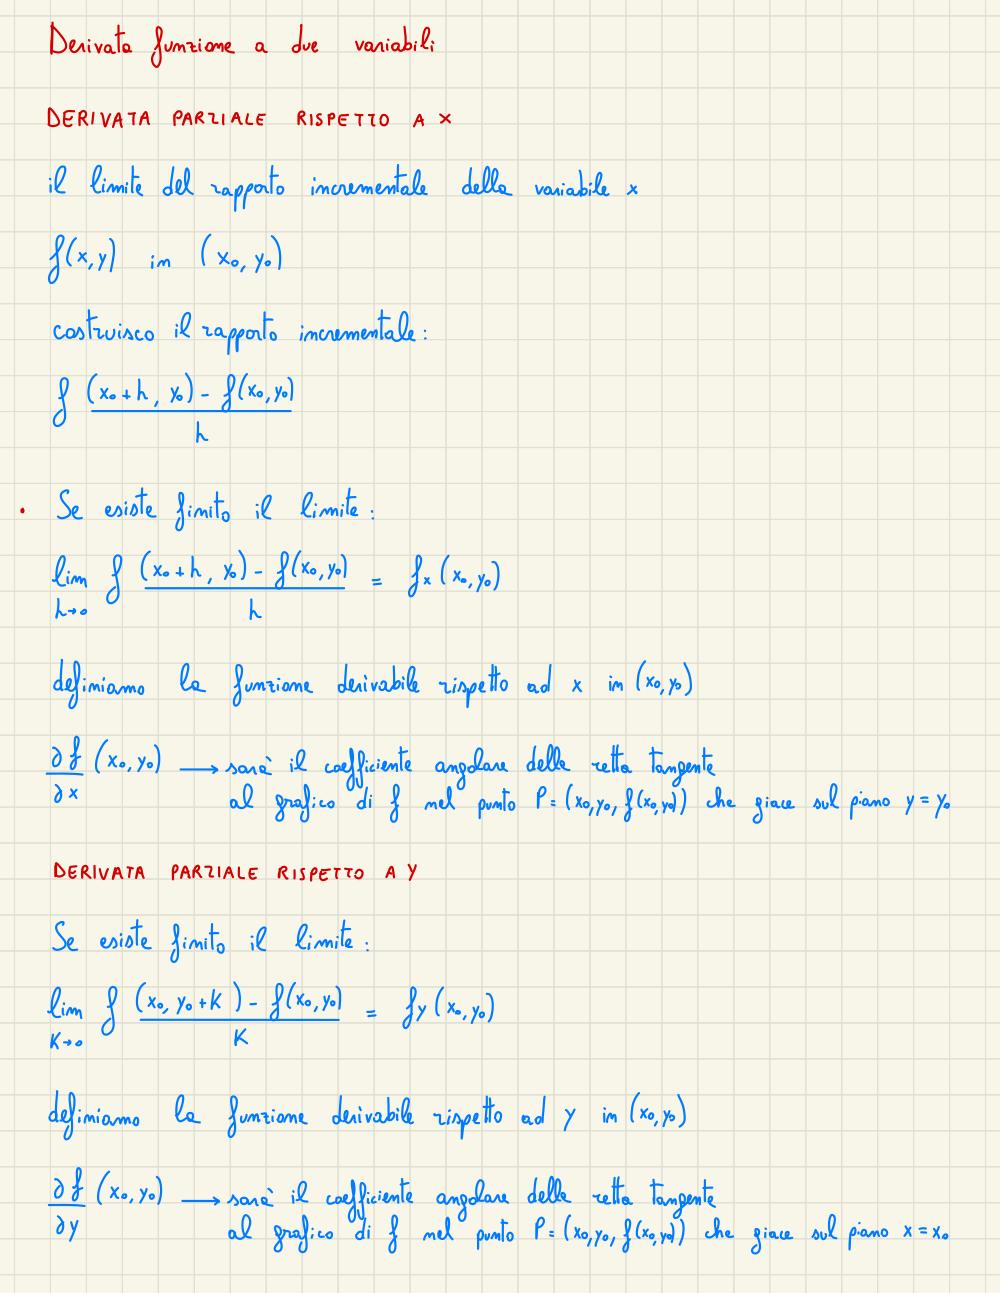 Derivata funzione a due variabili
DERIVATA PARZIALE RISPETTO A X
il limite del rapporto incrementale della variabile x
f(x,y) in (x₀, y₀)
costruisco il rapporto incrementale:
f (x₀+h, y₀) - f(x₀,y₀)
h
. Se esiste finito il limite:
lim f (x₀+h, y₀) - f(x₀,y₀) = fx (x₀,y₀)
h→0 h
definiamo la funzione derivabile rispetto ad x in (x₀,y₀)
∂f (x₀,y₀) → sarà il coefficiente angolare della retta tangente
∂x al grafico di f nel punto P=(x₀,y₀, f(x₀,y₀)) che giace sul piano y = y₀
DERIVATA PARZIALE RISPETTO A Y
Se esiste finito il limite:
lim f (x₀, y₀+K) - f(x₀,y₀) = fy (x₀,y₀)
K→0 K
definiamo la funzione derivabile rispetto ad y in (x₀,y₀)
∂f (x₀,y₀) → sarà il coefficiente angolare della retta tangente
∂y al grafico di f nel punto P=(x₀,y₀, f(x₀,y₀)) che giace sul piano x = x₀